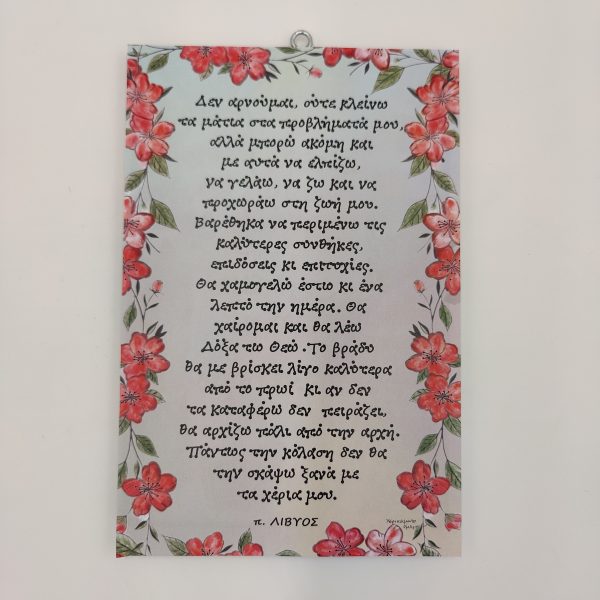 Δεν αρνούμαι, ούτε κλείνω
τα μάτια στα προβλήματά μου,
αλλά μπορώ ακόμη και
με αυτά να ελπίζω,
να γελάω, να ζω και να
προχωράω στη ζωή μου.
Βαρέθηκα να περιμένω τις
καλύτερες συνθήκες,
επιδόσεις κι επιτυχίες.
Θα χαμογελώ έστω κι ένα
λεπτό την ημέρα. Θα
χαίρομαι και θα λέω
Δόξα τω Θεώ .Το βράδυ
θα με βρίσκει λίγο καλύτερα
από το πρωί κι αν δεν
τα καταφέρω δεν πειράζει,
θα αρχίζω πάλι από την αρχή.
Πάντως την κόλαση δεν θα
την σκάψω ξανά με
τα χέρια μου.
π. ΛΙΒΥΟΣ